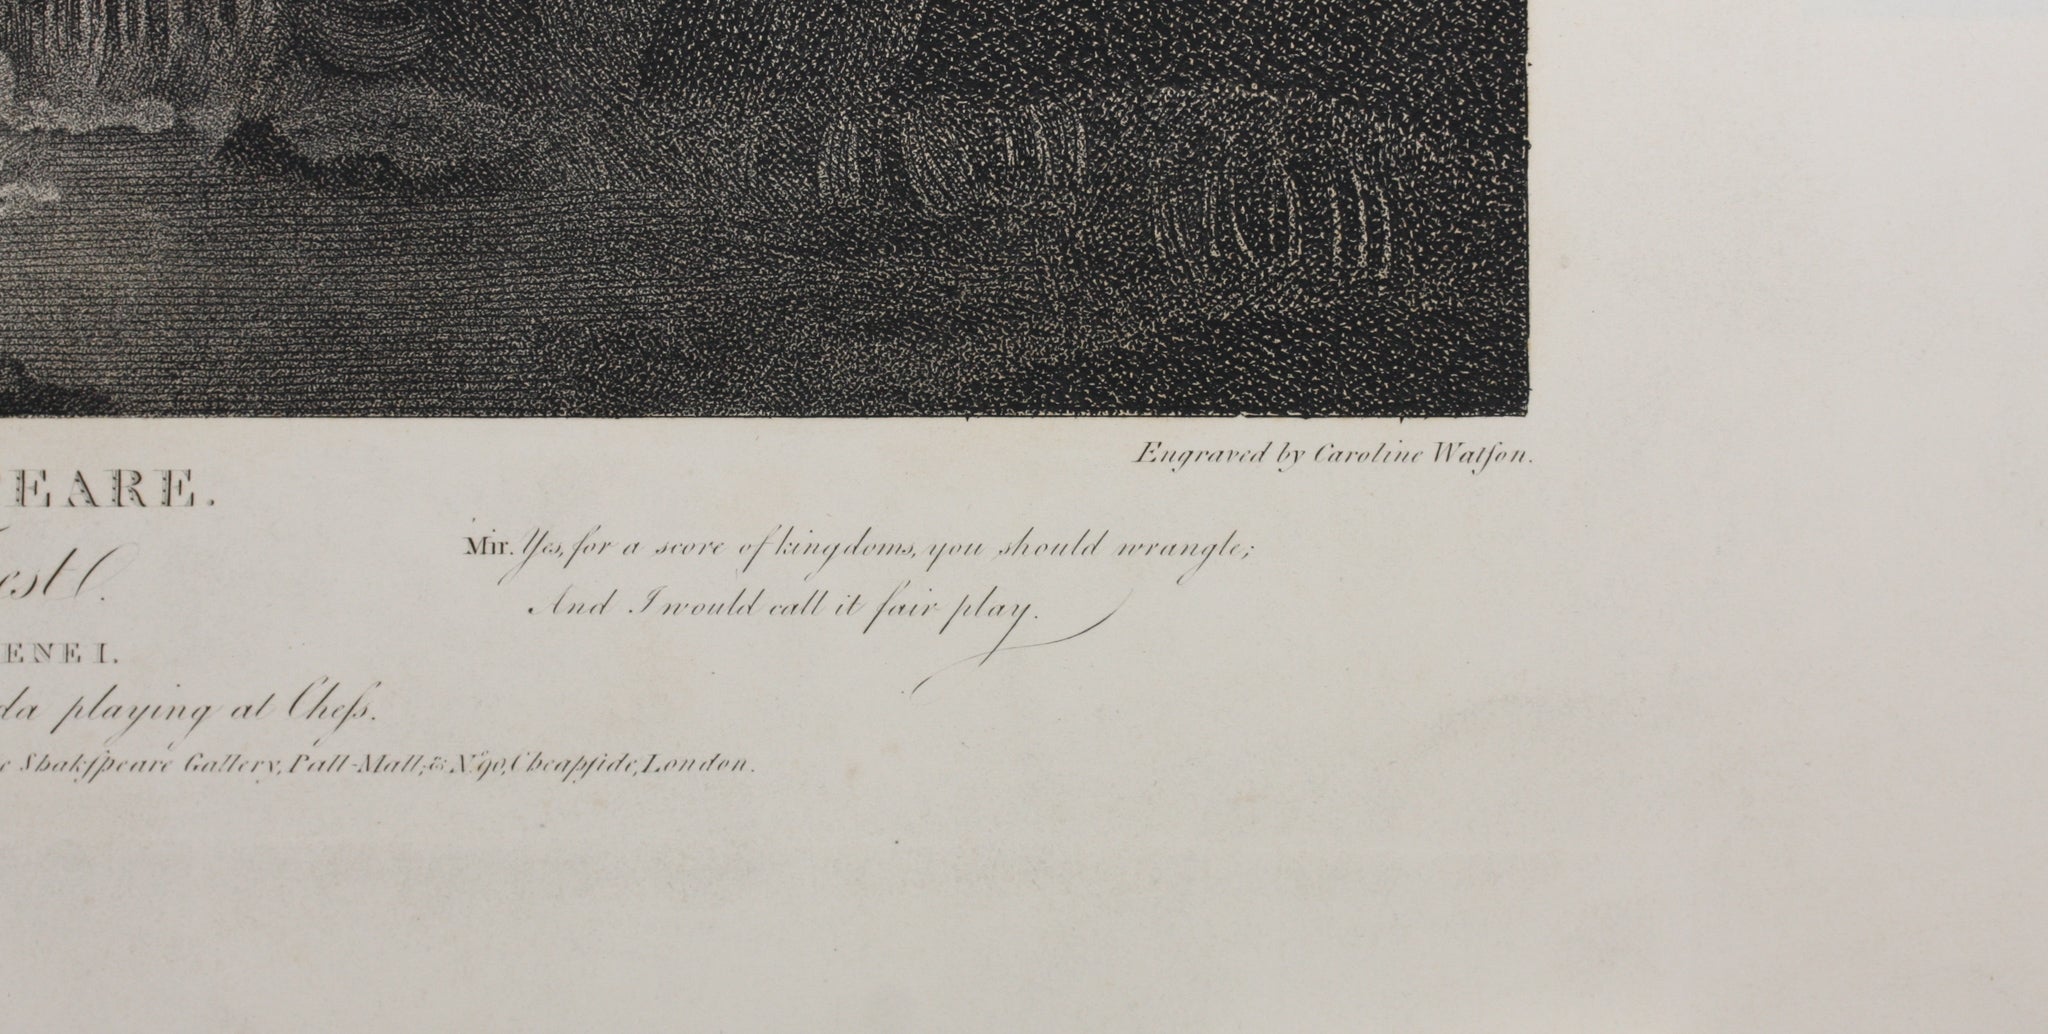 Engraved by Caroline Watſon.
PEARE.
est.
Mir. Yes, for a score of kingdoms, you should wrangle;
And I would call it fair play.
ENE I.
da playing at Cheſs.
e Shakſpeare Gallery, Pall-Mall, & No. 90, Cheapſide, London.